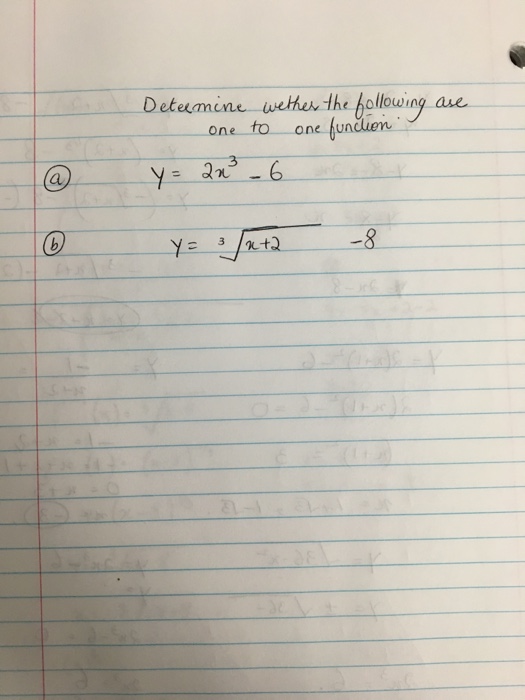 Determine wether the following are
one to one function.
(a) y = 2x³ - 6
(b) y = ³√x+2 -8